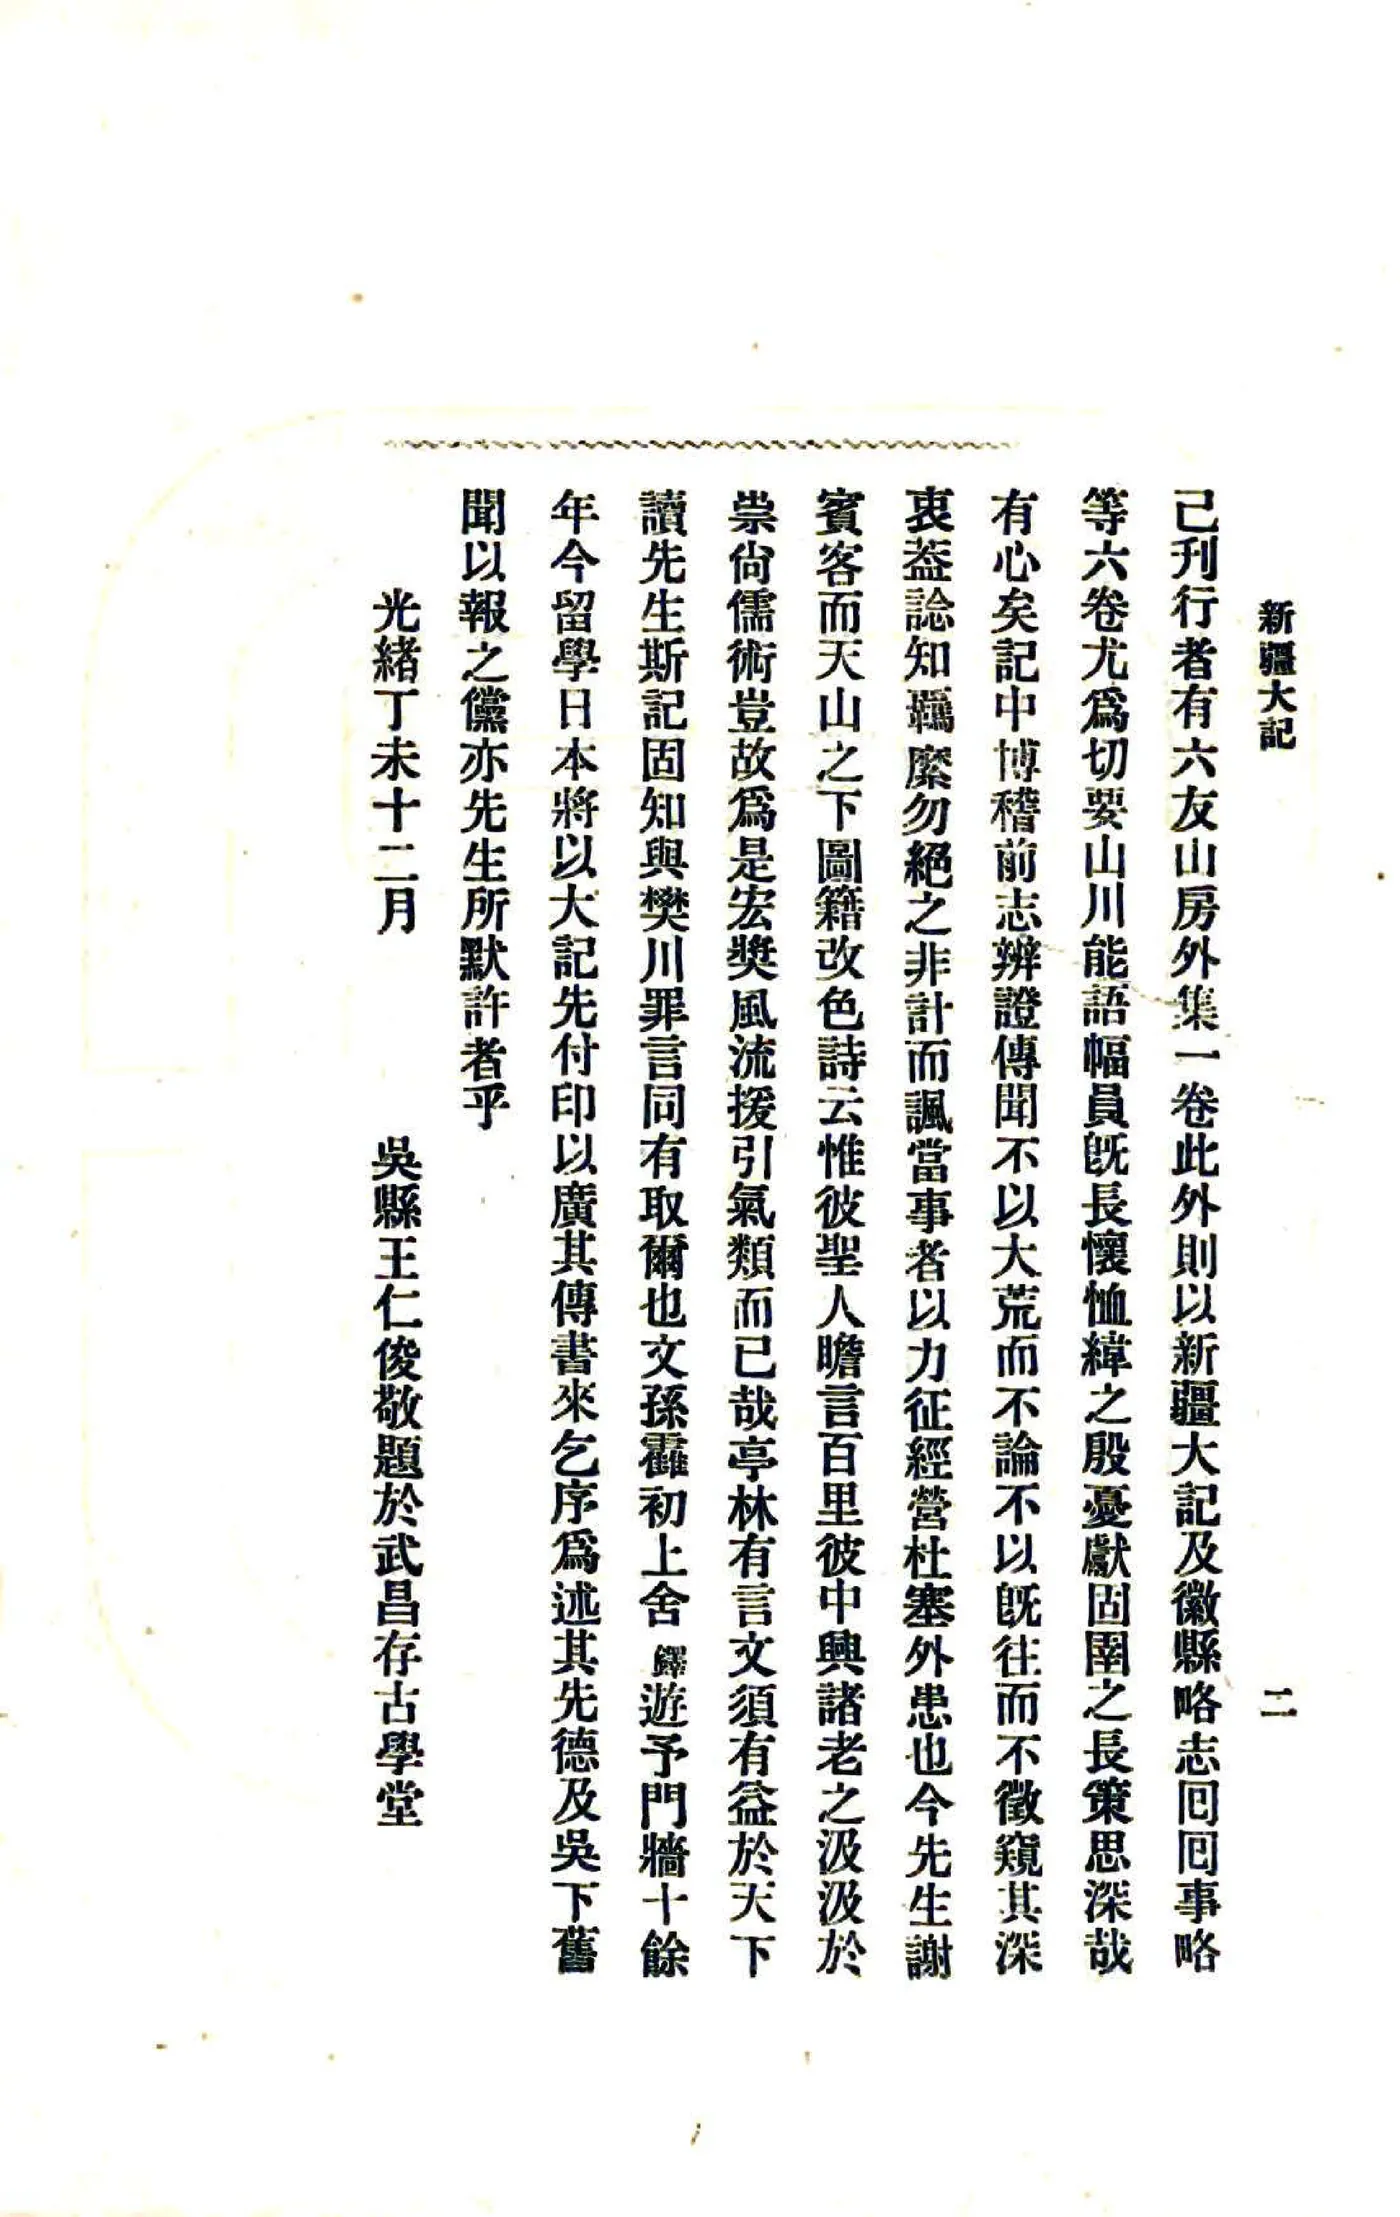 新疆大記
二
己刊行者有六友山房外集一卷此外則以新疆大記及徽縣略志回回事略
等六卷尤爲切要山川能語幅員旣長懷恤緯之殷憂獻固圉之長策思深哉
有心矣記中博稽前志辨證傳聞不以大荒而不論不以旣往而不徵窺其深
衷葢諗知羈縻勿絕之非計而諷當事者以力征經營杜塞外患也今先生謝
賓客而天山之下圖籍改色詩云惟彼聖人瞻言百里彼中興諸老之汲汲於
崇尙儒術豈故爲是宏奬風流援引氣類而已哉亭林有言文須有益於天下
讀先生斯記固知與樊川罪言同有取爾也文孫霍初上舍鐸遊予門牆十餘
年今留學日本將以大記先付印以廣其傳書來乞序爲述其先德及吳下舊
聞以報之儻亦先生所默許者乎
光緒丁未十二月　吳縣王仁俊敬題於武昌存古學堂